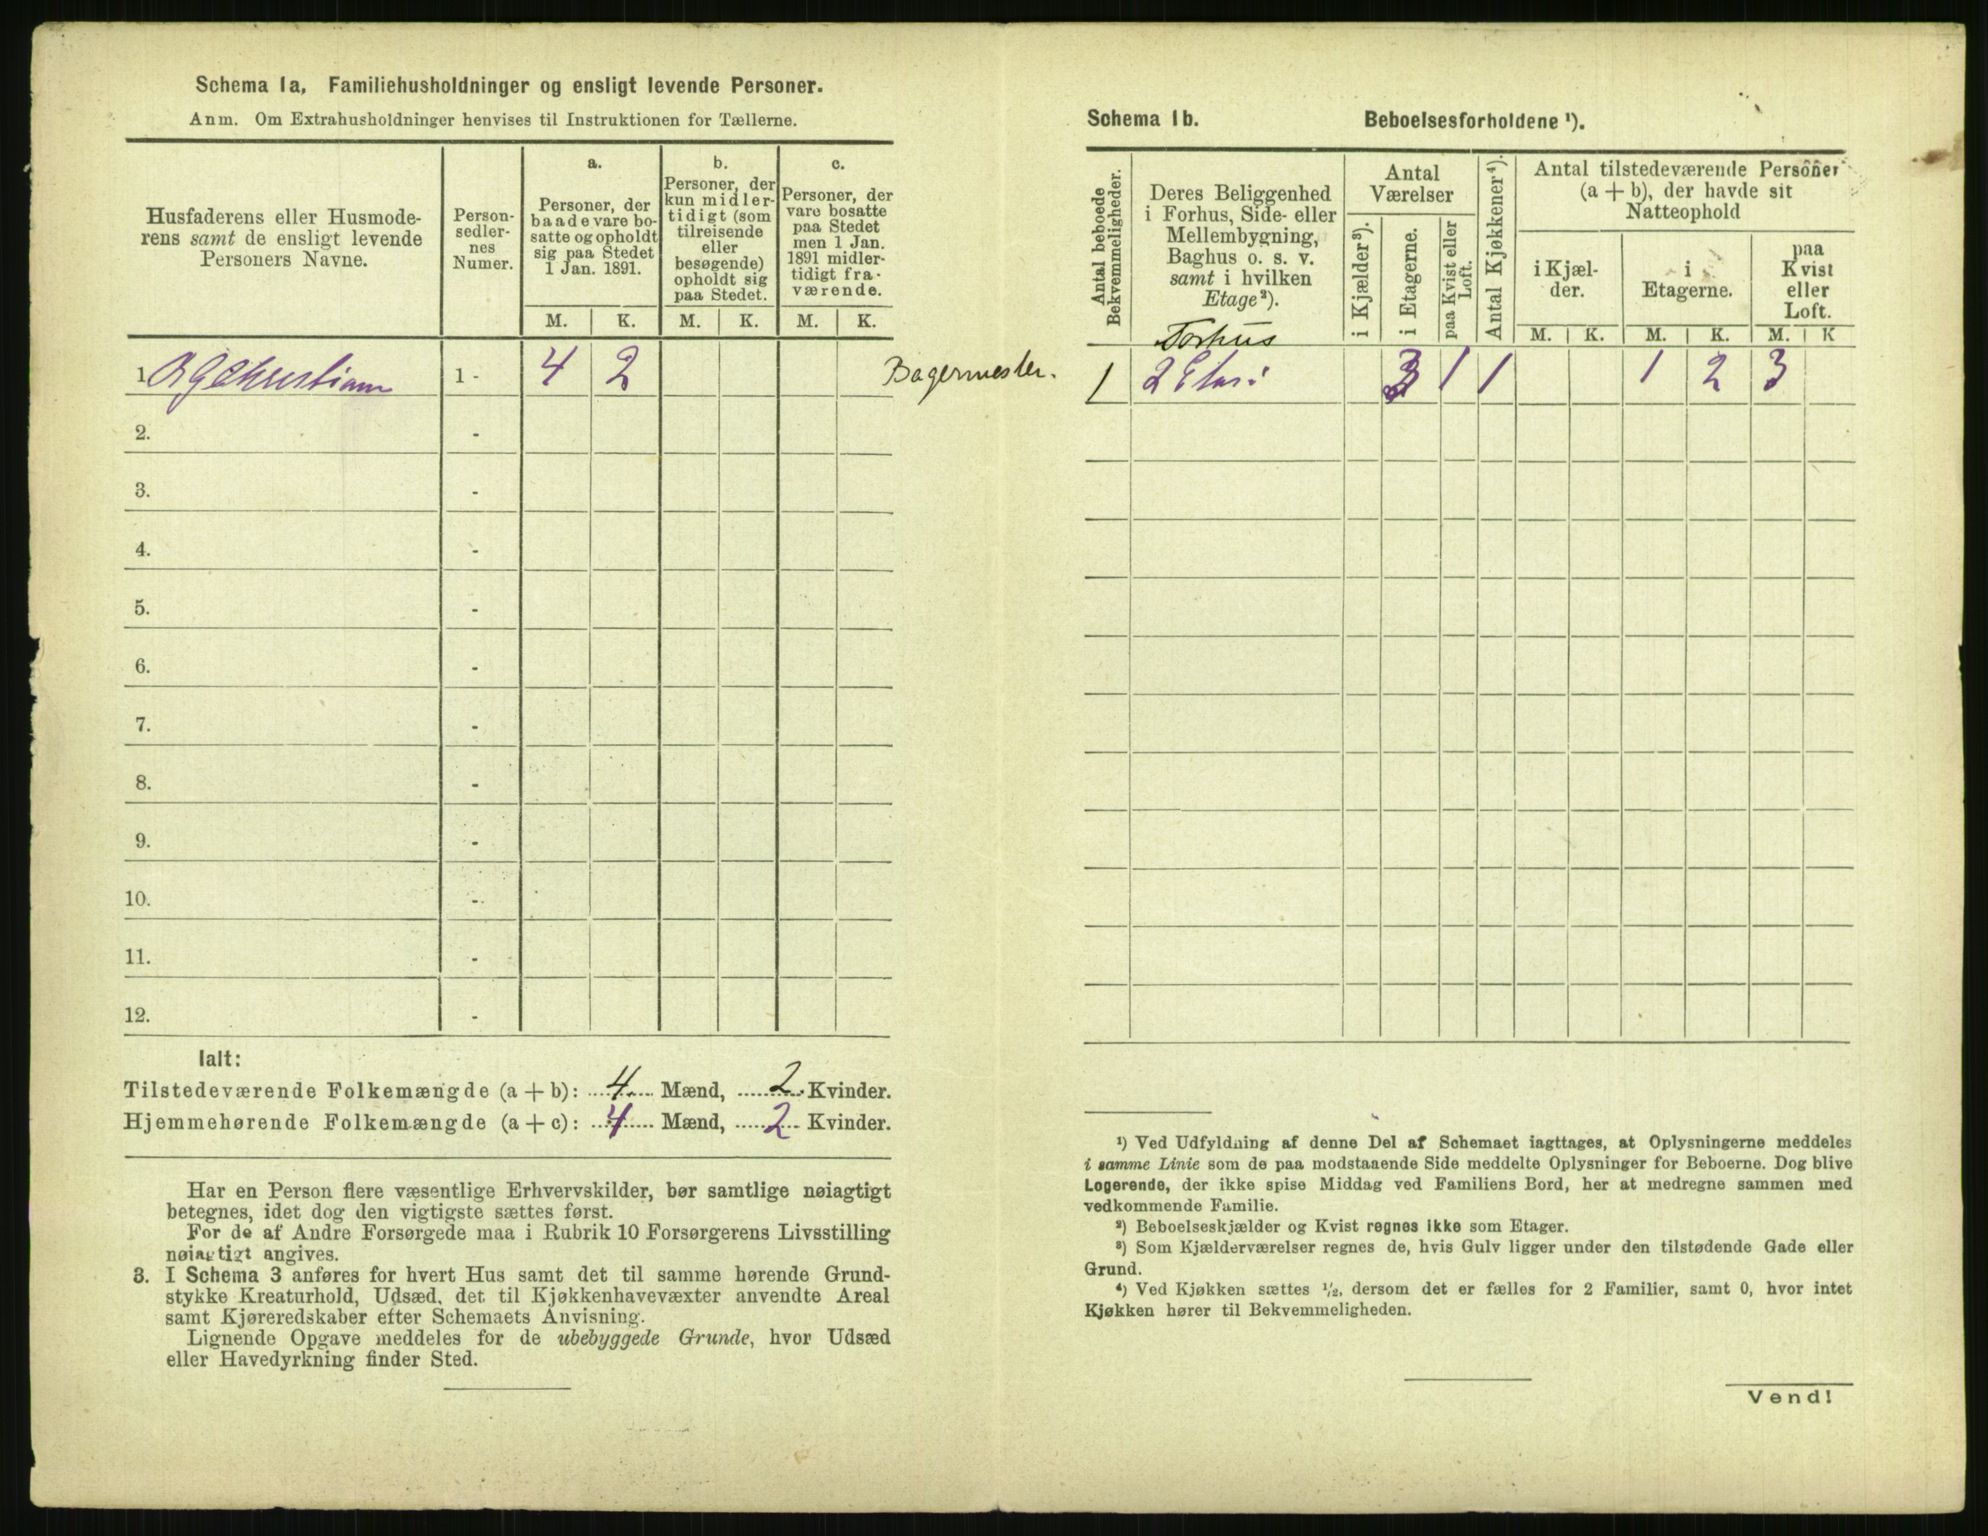 Schema 1a, Familiehusholdninger og ensligt levende Personer.
Anm. Om Extrahusholdninger henvises til Instruktionen for Tællerne.
Husfaderens eller Husmode-
rens samt de ensligt levende
Personers Navne.
Person-
sedler-
nes
Numer.
a.
Personer, der
baade vare bo-
satte og opholdt
sig paa Stedet
1 Jan. 1891.
b.
Personer, der
kun midler-
tidigt (som
tilreisende
eller
besøgende)
opholdt sig
paa Stedet.
c.
Personer, der
vare bosatte
paa Stedet
men 1 Jan.
1891 midler-
tidigt fra-
værende.
M. K. M. K. M. K.
1 1 - 4 2 Bagermester.
2. -
3. -
4. -
5. -
6. -
7. -
8. -
9. -
10. -
11. -
12. -
Ialt:
Tilstedeværende Folkemængde (a + b): 4 Mænd, 2 Kvinder.
Hjemmehørende Folkemængde (a + c): 4 Mænd, 2 Kvinder.
Har en Person flere væsentlige Erhvervskilder, bør samtlige nøiagtigt
betegnes, idet dog den vigtigste sættes først.
For de af Andre Forsørgede maa i Rubrik 10 Forsørgerens Livsstilling
nøiagtigt angives.
3. I Schema 3 anføres for hvert Hus samt det til samme hørende Grund-
stykke Kreaturhold, Udsæd, det til Kjøkkenhavevæxter anvendte Areal
samt Kjøreredskaber efter Schemaets Anvisning.
Lignende Opgave meddeles for de ubebyggede Grunde, hvor Udsæd
eller Havedyrkning finder Sted.
Schema 1b. Beboelsesforholdene ¹).
Antal beboede
Bekvemmeligheder.
Deres Beliggenhed
i Forhus, Side- eller
Mellembygning,
Baghus o. s. v.
samt i hvilken
Etage²).
Antal
Værelser
i Kjælder³).
i Etagerne.
paa Kvist eller
Loft.
Antal Kjøkkener⁴).
Antal tilstedeværende Personer
(a + b), der havde sit
Natteophold
i Kjæl-
der.
i
Etagerne.
paa
Kvist
eller
Loft.
M. K. M. K. M. K
Forhus
1 3 1 1 1 2 3
¹) Ved Udfyldning af denne Del af Schemaet iagttages, at Oplysningerne meddeles
i samme Linie som de paa modstaaende Side meddelte Oplysninger for Beboerne. Dog blive
Logerende, der ikke spise Middag ved Familiens Bord, her at medregne sammen med
vedkommende Familie.
²) Beboelseskjælder og Kvist regnes ikke som Etager.
³) Som Kjælderværelser regnes de, hvis Gulv ligger under den tilstødende Gade eller
Grund.
⁴) Ved Kjøkken sættes ½, dersom det er fælles for 2 Familier, samt 0, hvor intet
Kjøkken hører til Bekvemmeligheden.
Vend!